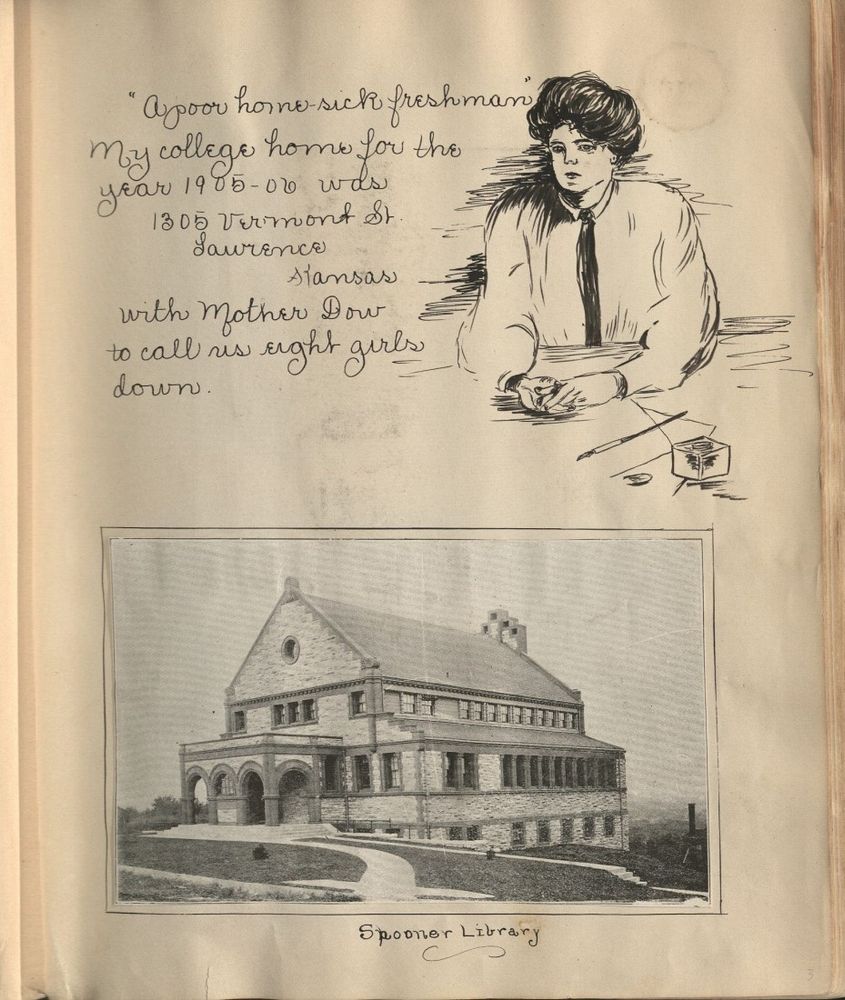 "A poor home-sick freshman"
My college home for the
year 1905-06 was
1305 Vermont St.
Lawrence
Kansas
with Mother Dow
to call us eight girls
down.
Spooner Library
3